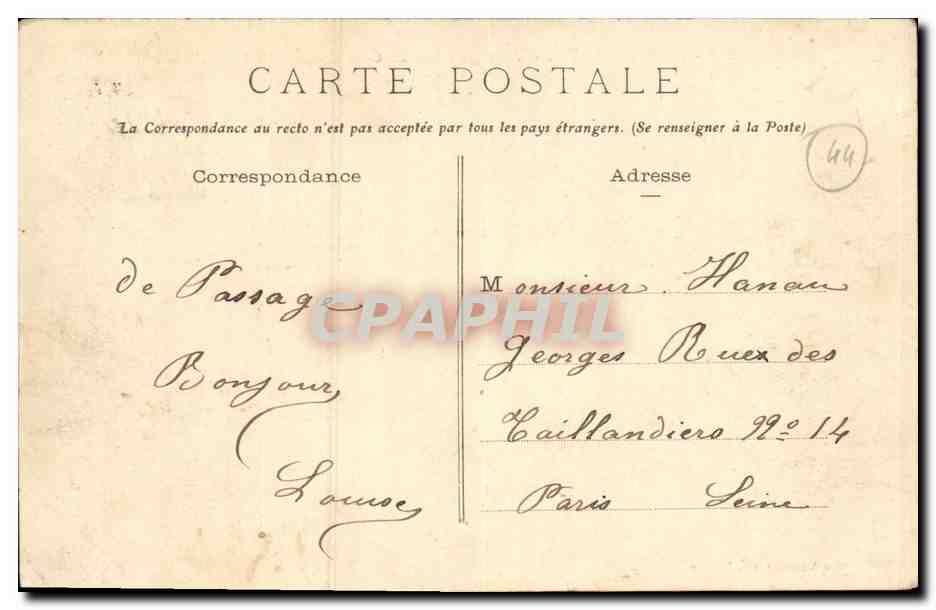 CARTE POSTALE
La Correspondance au recto n'est pas acceptée par tous les pays étrangers. (Se renseigner à la Poste)
44
Correspondance
de Passage
Bonjour
Louise
Adresse
Monsieur Hanau
Georges Rue des
Taillandiers No 14
Paris Seine
CPAPHIL